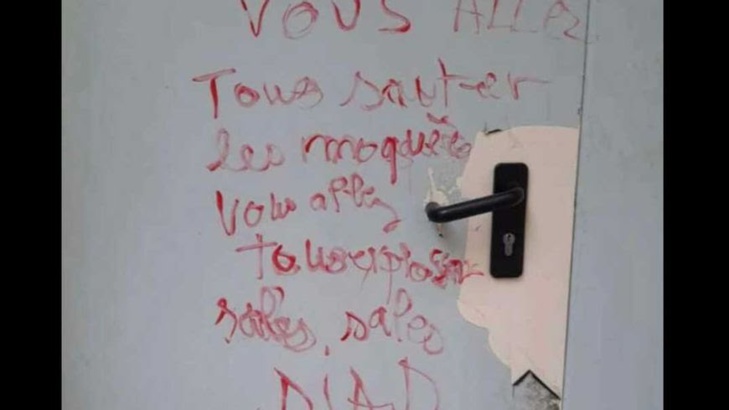 VOUS ALLEZ
Tous sauter
les moquées
Vous allez
tous exploser
sales, sales
D'AR